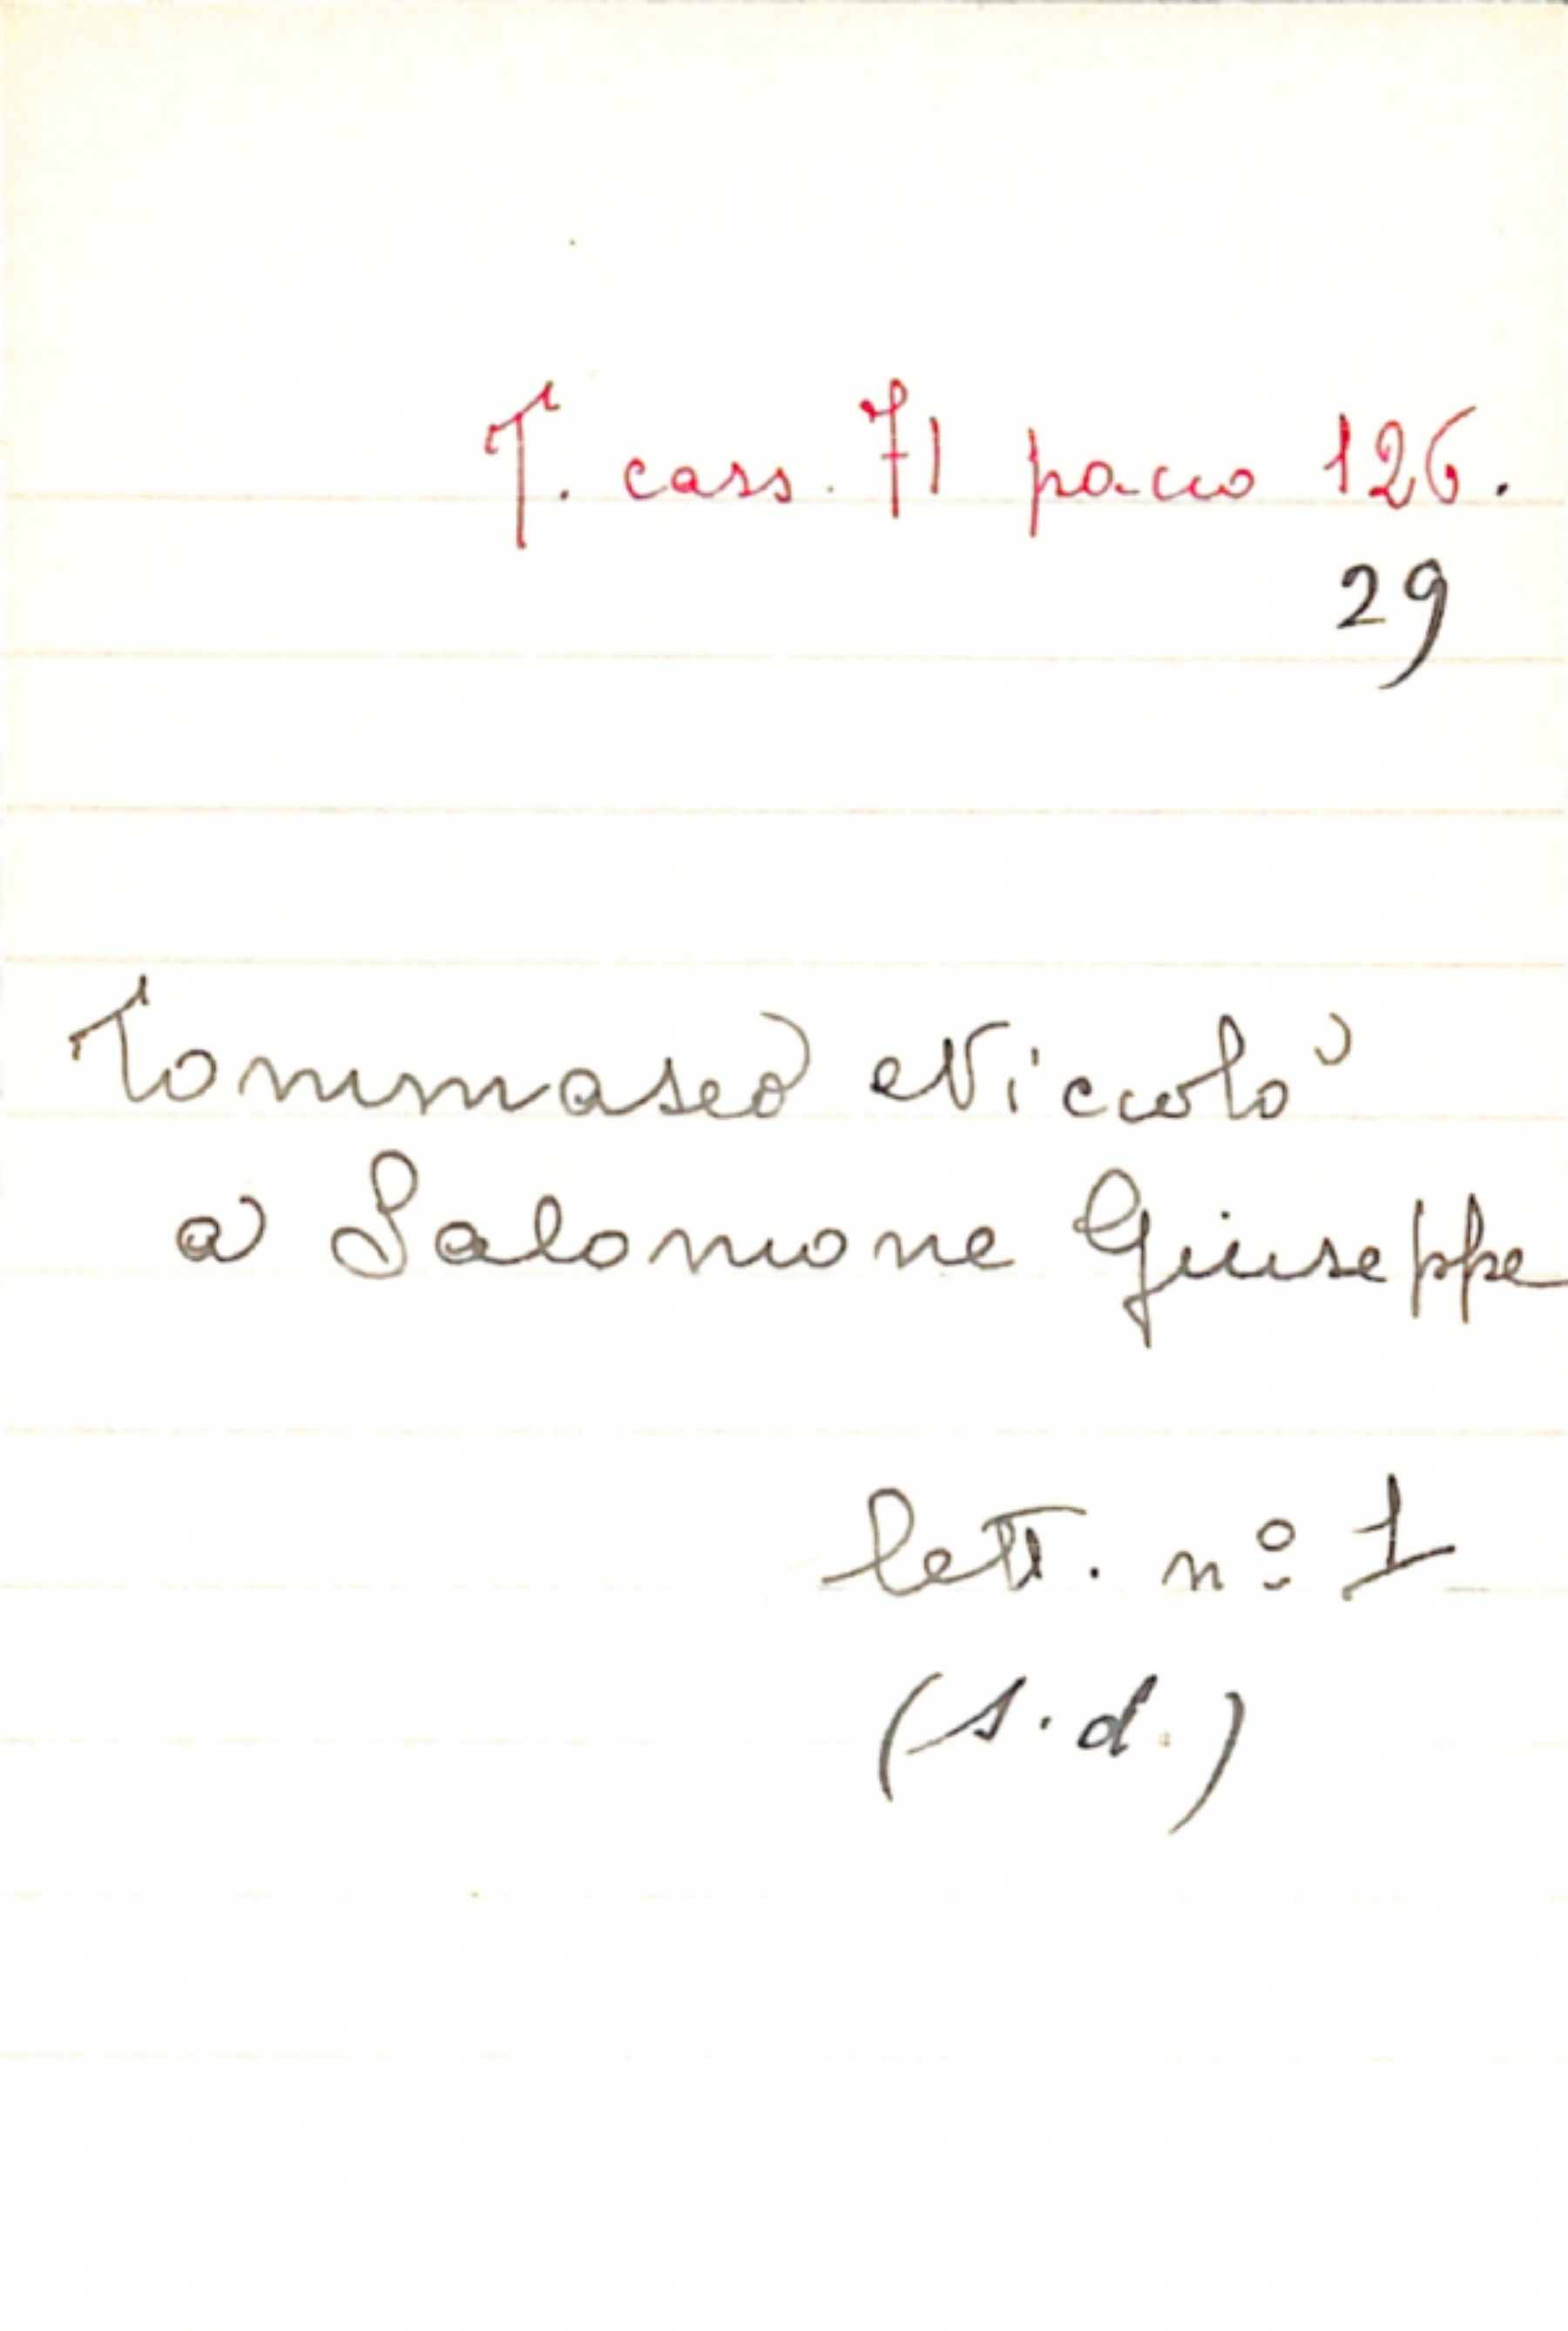 T. cass. 71 pacco 126.
29
Tommaseo Niccolò
a Salomone Giuseppe
lett. nº 1
(s.d.)